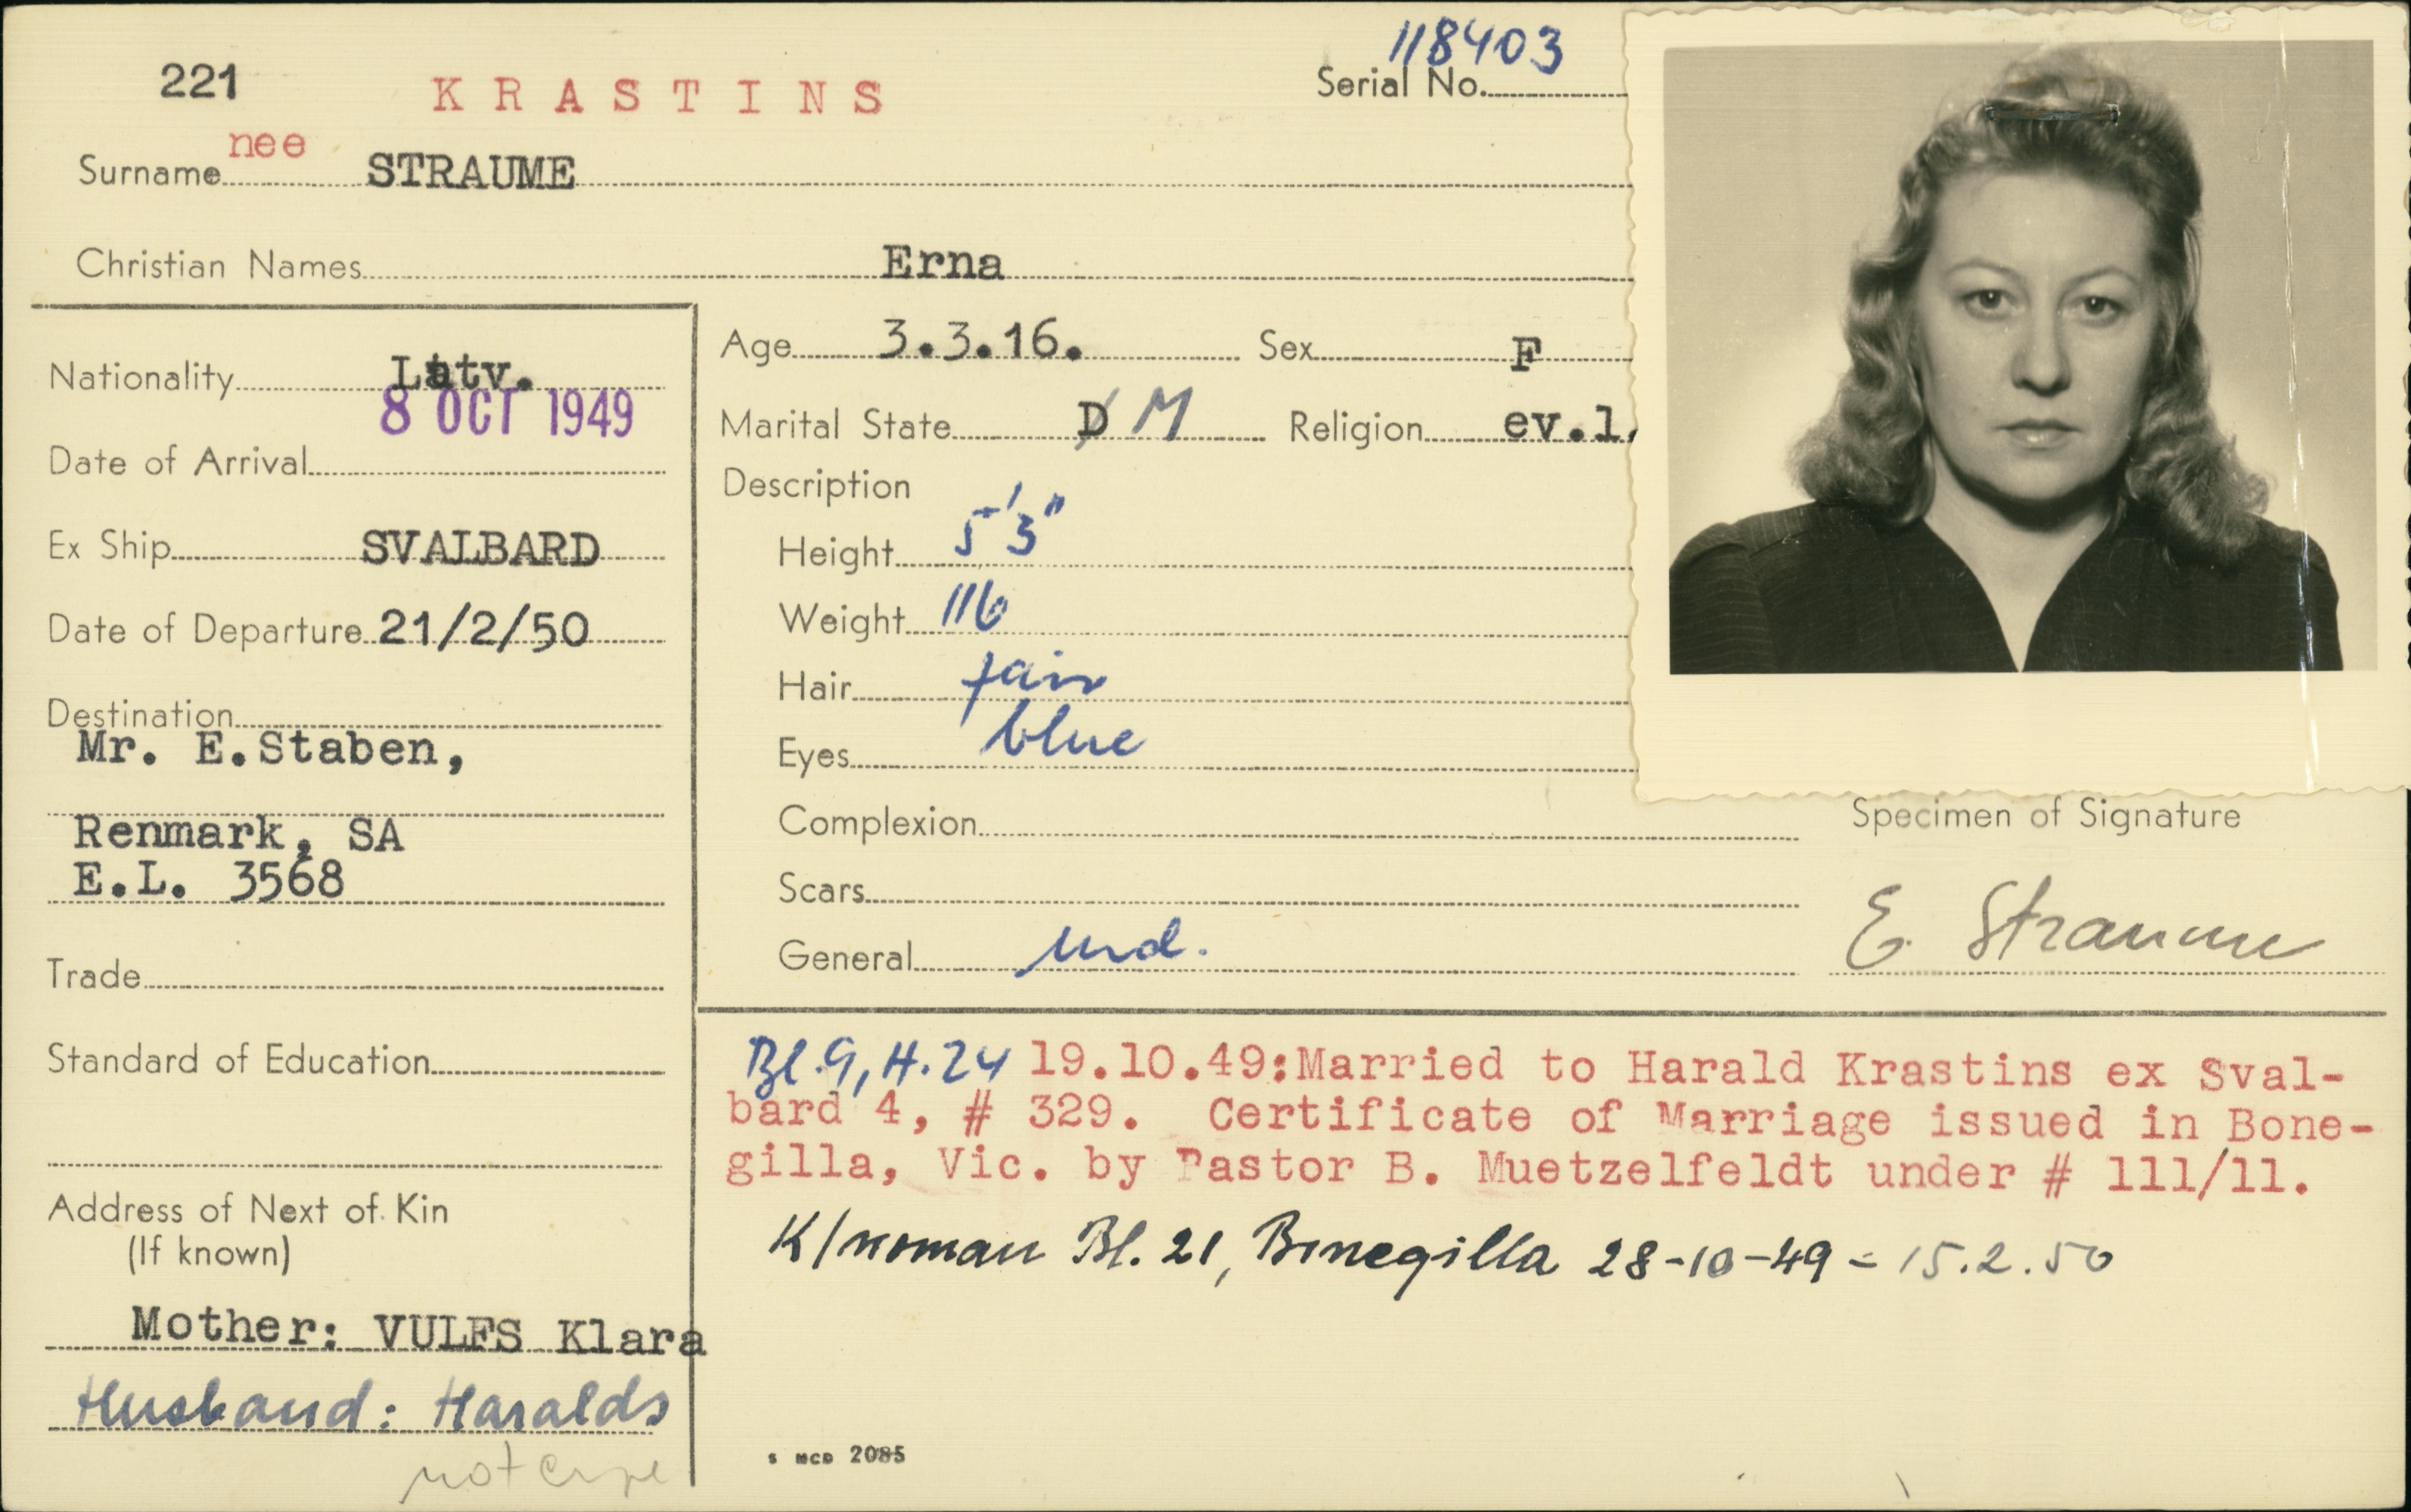 221
KRASTINS
Serial No. 118403
nee
Surname STRAUME
Christian Names Erna
Nationality Latv.
8 OCT 1949
Date of Arrival
Ex Ship SVALBARD
Date of Departure 21/2/50
Destination
Mr. E.Staben,
Renmark, SA
E.L. 3568
Trade
Standard of Education
Address of Next of Kin
(If known)
Mother: VULFS Klara
Husband: Haralds
Age 3.3.16. Sex F
Marital State D M Religion ev.l.
Description
Height 5'3"
Weight 116
Hair fair
Eyes blue
Complexion
Scars
General
Specimen of Signature
E. Straume
Bl.9, H.24 19.10.49:Married to Harald Krastins ex Sval-
bard 4, # 329. Certificate of Marriage issued in Bone-
gilla, Vic. by Pastor B. Muetzelfeldt under # 111/11.
K/woman Bl. 21, Bonegilla 28-10-49 - 15.2.50
S MCD 2085